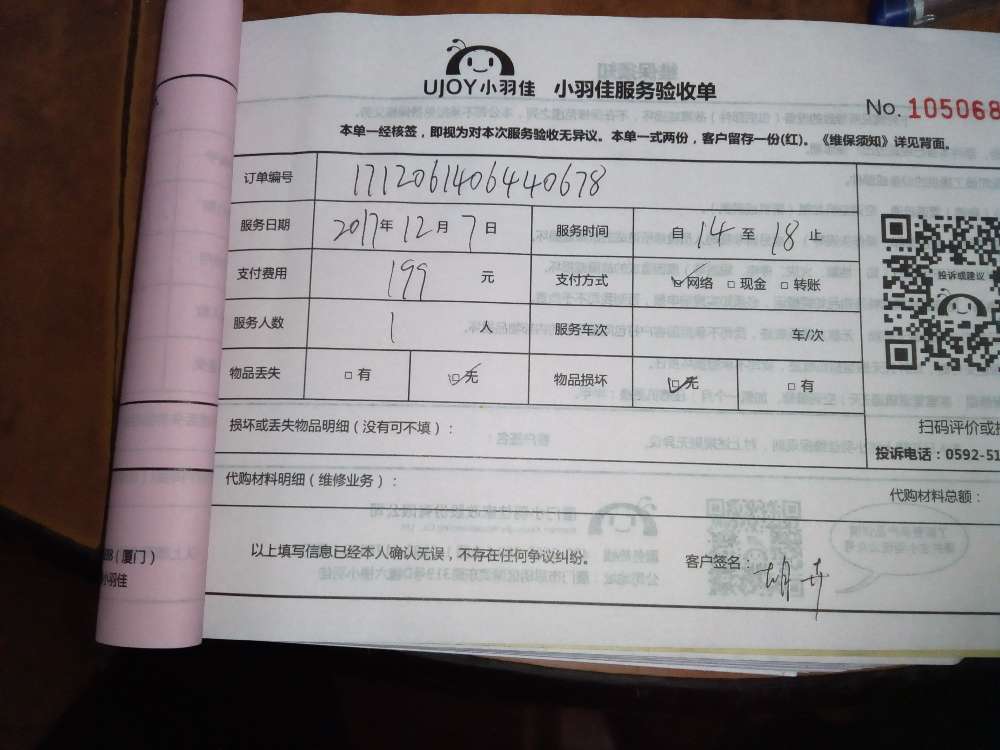 UJOY小羽佳 小羽佳服务验收单
No. 105068
本单一经核签，即视为对本次服务验收无异议。本单一式两份，客户留存一份(红)。《维保须知》详见背面。
订单编号 1712061406440678
服务日期 2017年12月7日 服务时间 自14至18止
支付费用 199 元 支付方式 ☑网络 □现金 □转账
服务人数 1 人 服务车次 车/次
物品丢失 □有 ☑无 物品损坏 ☑无 □有
投诉或建议
损坏或丢失物品明细（没有可不填）：
扫码评价或
投诉电话：0592-51
代购材料明细（维修业务）：
代购材料总额：
以上填写信息已经本人确认无误，不存在任何争议纠纷。
客户签名：
（厦门）
小羽佳